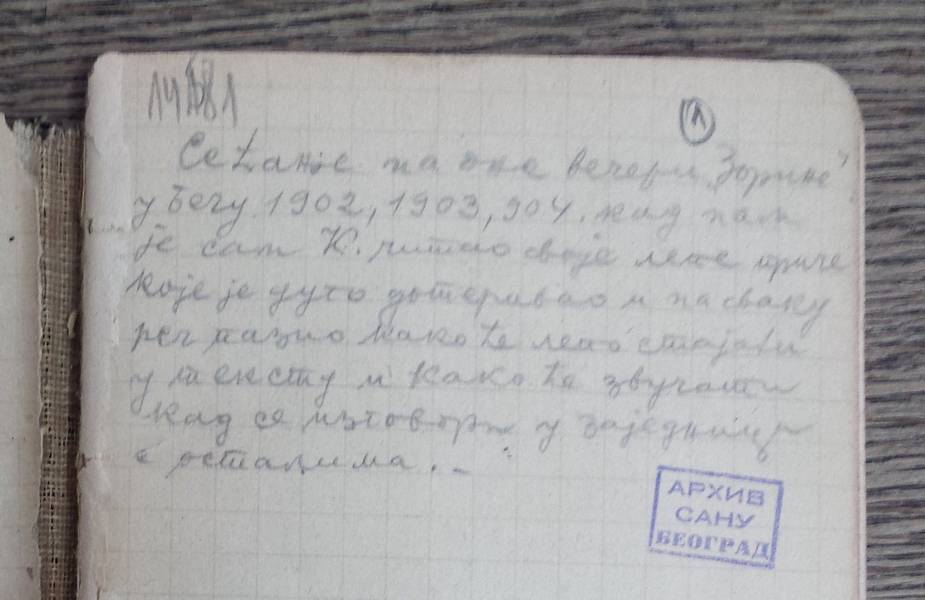 14581
1
Сећање на оне вечери „Зорине"
у Бечу 1902, 1903, 904. кад нам
је сам К. читао своје лепе приче
које је дуго дотеривао и на сваку
реч пазио како ће лепо стајати
у тексту и како ће звучати
кад се изговори у заједници
с осталима . –
АРХИВ
САНУ
БЕОГРАД